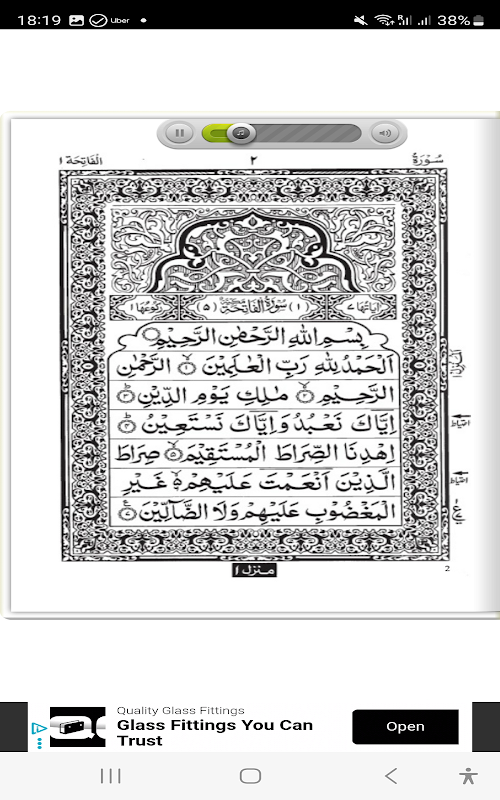 18:19 Uber 38%
الْفَاتِحَة ١ ٢ سُوْرَةُ
اٰيَاتُهَا ٧ (١) سُوْرَةُ الْفَاتِحَةِ (٥) رُكُوْعُهَا ١
بِسْمِ اللهِ الرَّحْمٰنِ الرَّحِيْمِ
اَلْحَمْدُ لِلّٰهِ رَبِّ الْعٰلَمِيْنَ ۙ﴿١﴾ الرَّحْمٰنِ
الرَّحِيْمِ ۙ﴿٢﴾ مٰلِكِ يَوْمِ الدِّيْنِ ؕ﴿٣﴾
اِيَّاكَ نَعْبُدُ وَاِيَّاكَ نَسْتَعِيْنُ ؕ﴿٤﴾
اِهْدِنَا الصِّرَاطَ الْمُسْتَقِيْمَ ۙ﴿٥﴾ صِرَاطَ
الَّذِيْنَ اَنْعَمْتَ عَلَيْهِمْ ۙ۬﴿٦﴾ غَيْرِ
الْمَغْضُوْبِ عَلَيْهِمْ وَلَا الضَّآلِّيْنَ ﴿٧﴾
احتیاط
احتیاط
منزل ١
2
Quality Glass Fittings
Glass Fittings You Can
Trust
Open